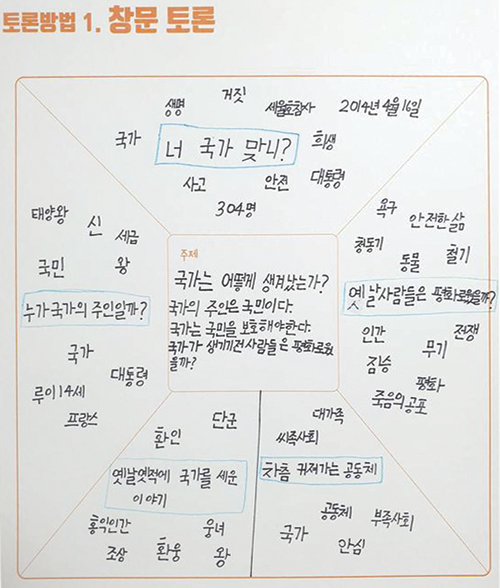 토론방법 1. 창문 토론
생명 거짓 세월호참사 2014년 4월 16일
국가 너 국가 맞니? 희생
사고 안전 대통령
304명
태양왕 신 세금
국민 왕
누가 국가의 주인일까?
국가 대통령
루이 14세
프랑스
욕구 안전한 삶
청동기 동물 철기
옛날사람들은 평화로웠을까?
인간 무기 전쟁
짐승 평화
죽음의 공포
주제
국가는 어떻게 생겨났는가?
국가의 주인은 국민이다.
국가는 국민을 보호해야한다.
국가가 생기기전 사람들은 평화로웠
을까?
단군
환인
옛날옛적에 국가를 세운
이야기
홍익인간 웅녀
조상 환웅 왕
대가족
씨족사회
차츰 커져가는 공동체
공동체 부족사회
국가 안심